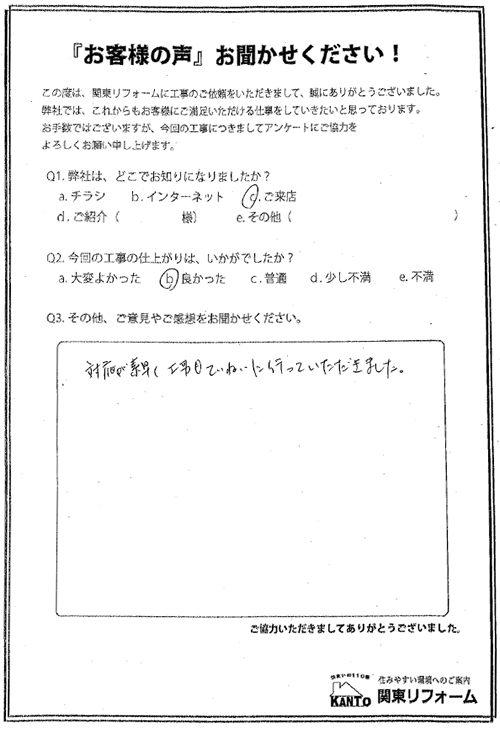 『お客様の声』お聞かせください！
この度は、関東リフォームに工事のご依頼をいただきまして、誠にありがとうございました。
弊社では、これからもお客様にご満足いただける仕事をしていきたいと思っております。
お手数ではございますが、今回の工事につきましてアンケートにご協力を
よろしくお願い申し上げます。
Q1. 弊社は、どこでお知りになりましたか？
a. チラシ b. インターネット c. ご来店
d. ご紹介（ 様） e. その他（ ）
Q2. 今回の工事の仕上がりは、いかがでしたか？
a. 大変よかった b 良かった c. 普通 d. 少し不満 e. 不満
Q3. その他、ご意見やご感想をお聞かせください。
対応が素早く工事もていねいに行っていただきました。
ご協力いただきましてありがとうございました。
住まいの110番
KANTO
住みやすい環境へのご案内
関東リフォーム